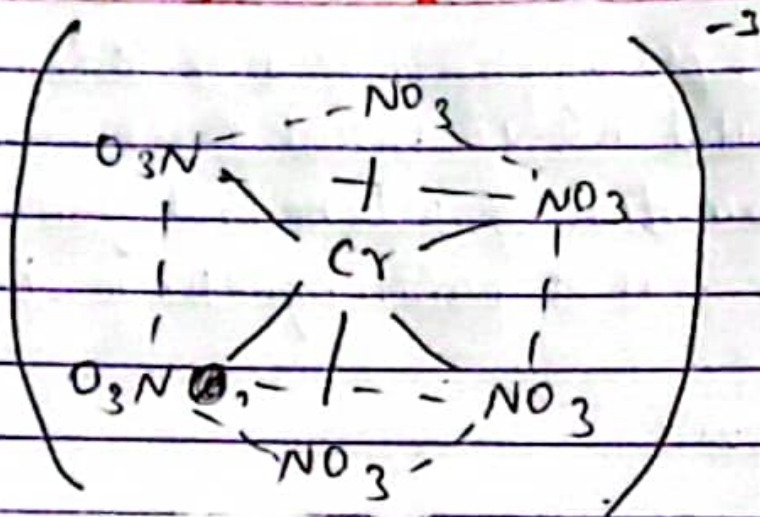 -3
NO3
O3N
NO3
Cr
O3N
NO3
NO3